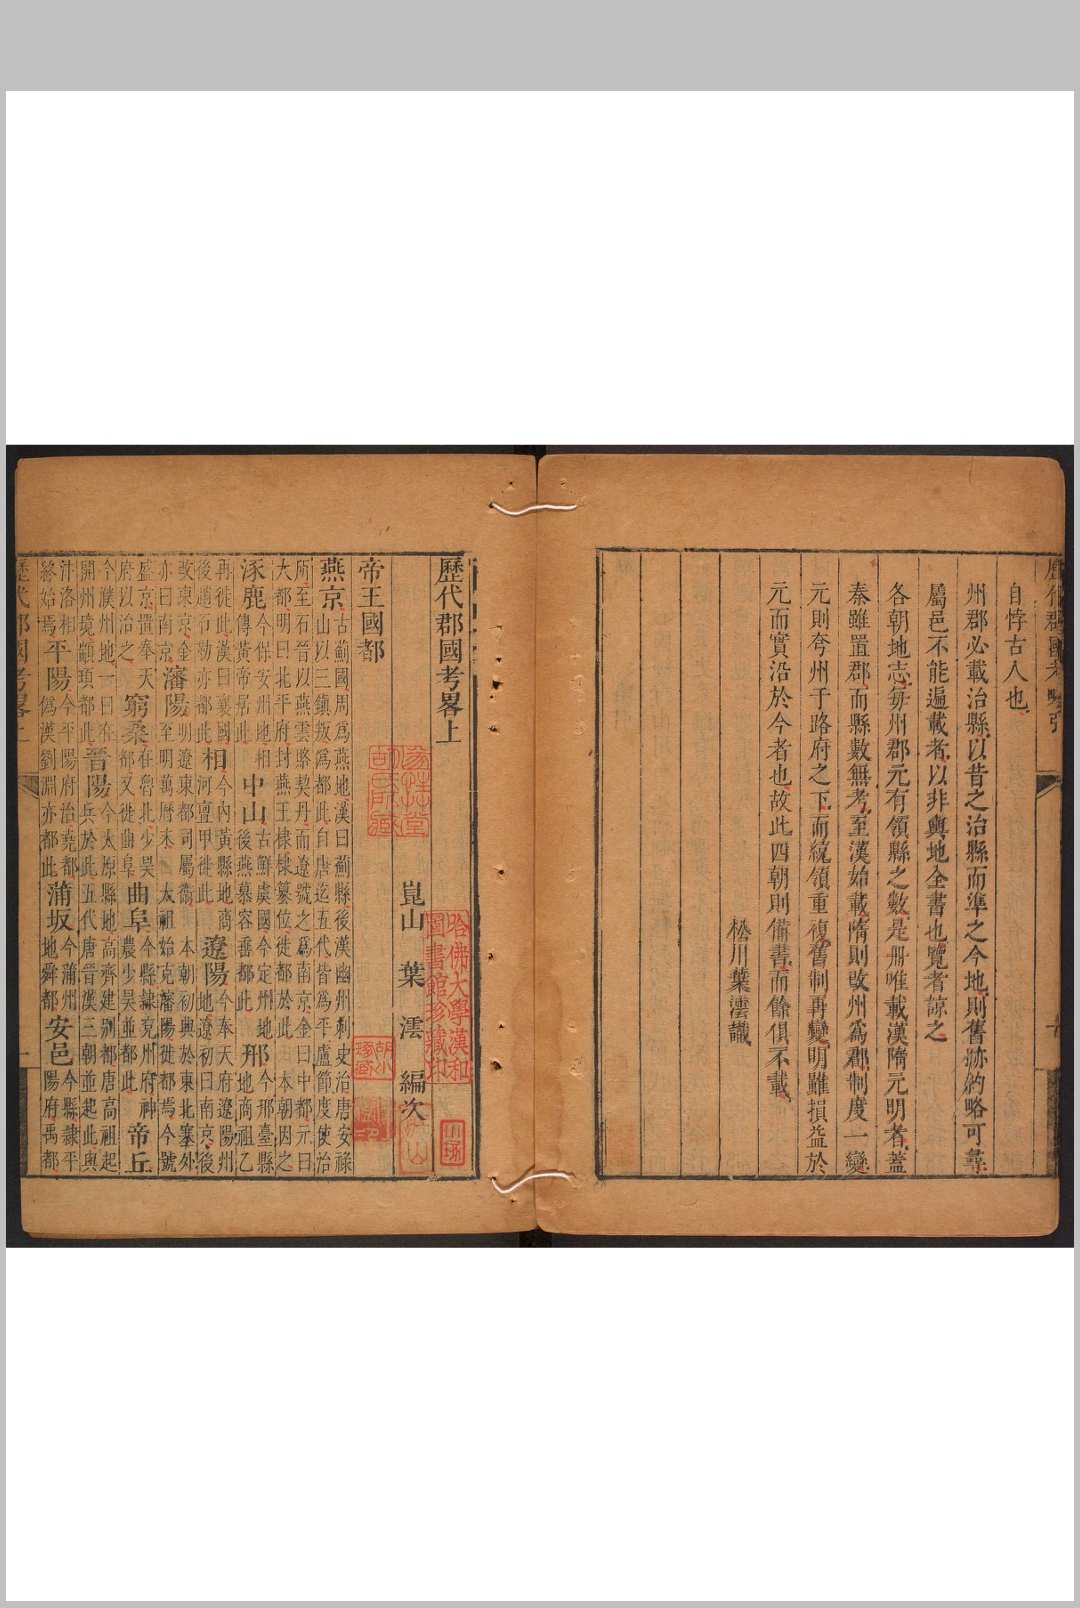 歷代郡國考畧引
自悖古人也
州郡必載治縣以昔之治縣而準之今地則舊跡約略可尋
屬邑不能遍載者以非輿地全書也覽者諒之
各朝地志每州郡元有領縣之數是册唯載漢隋元明者蓋
秦雖置郡而縣數無考至漢始載隋則改州爲郡制度一變
元則夸州于路府之下而統領重復舊制再變明雖損益於
元而實沿於今者也故此四朝則備書而餘俱不載
松川葉澐識
歷代郡國考畧上
崑山 葉 澐 編次
哈佛大學漢和圖書館珍藏印
帝王國都
燕京古薊國周爲燕地漢曰薊縣後漢幽州刺史治唐安祿
山以三鎮叛爲都此自唐迄五代皆爲平盧節度使治
所至石晉以燕雲賂契丹而遼號之爲南京金曰中都元曰
大都明曰北平府封燕王棣棣篡位徙都於此本朝因之
涿鹿今保安州地相傳黃帝居此
中山古鮮虞國今定州地後燕慕容垂都此
邢今邢臺縣地商祖乙
再徙此漢曰襄國後趙石勒亦都此
相今內黃縣地商河亶甲徙此
遼陽今奉天府遼陽州地遼初曰南京後
改東京金明遼東都司屬衛本朝初興於東北塞外
亦曰南京
瀋陽至明萬曆末太祖始克瀋陽徙都焉今號
盛京置奉天府以治之
窮桑在魯北少昊都又徙曲阜
曲阜今縣隸兗州府神農少昊並都此
帝丘
今濮州地一曰在開州境顓頊都此
晉陽今太原縣地高齊建別都唐高祖起
兵於此五代唐晉漢三朝並起此與
汴洛相終始焉
平陽今平陽府治堯都僞漢劉淵亦都此
蒲坂今蒲州地舜都
安邑今縣隸平陽府禹都
歷代郡國考畧上
一